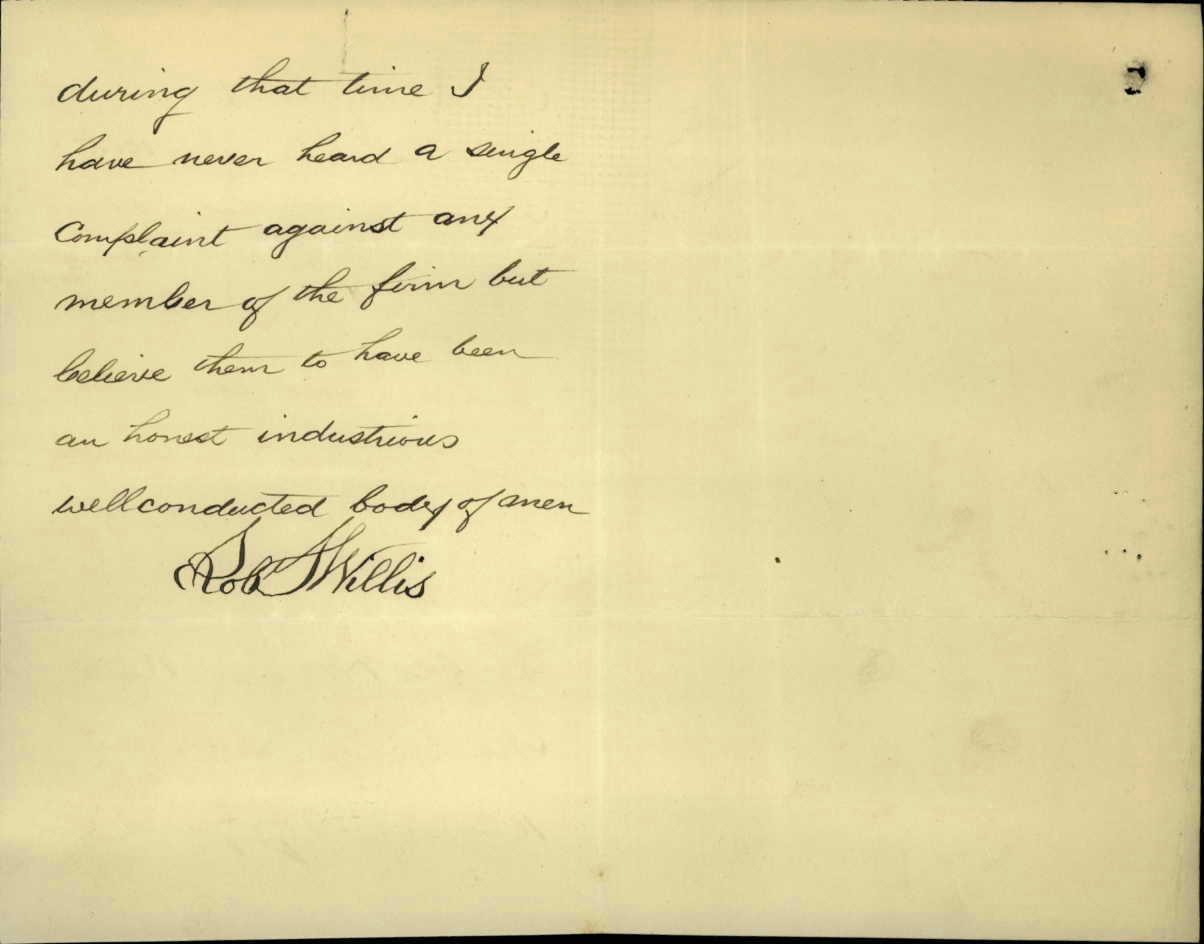 during that time I
have never heard a single
Complaint against any
member of the firm but
believe them to have been
an honest industrious
wellconducted body of men
Rob Willis